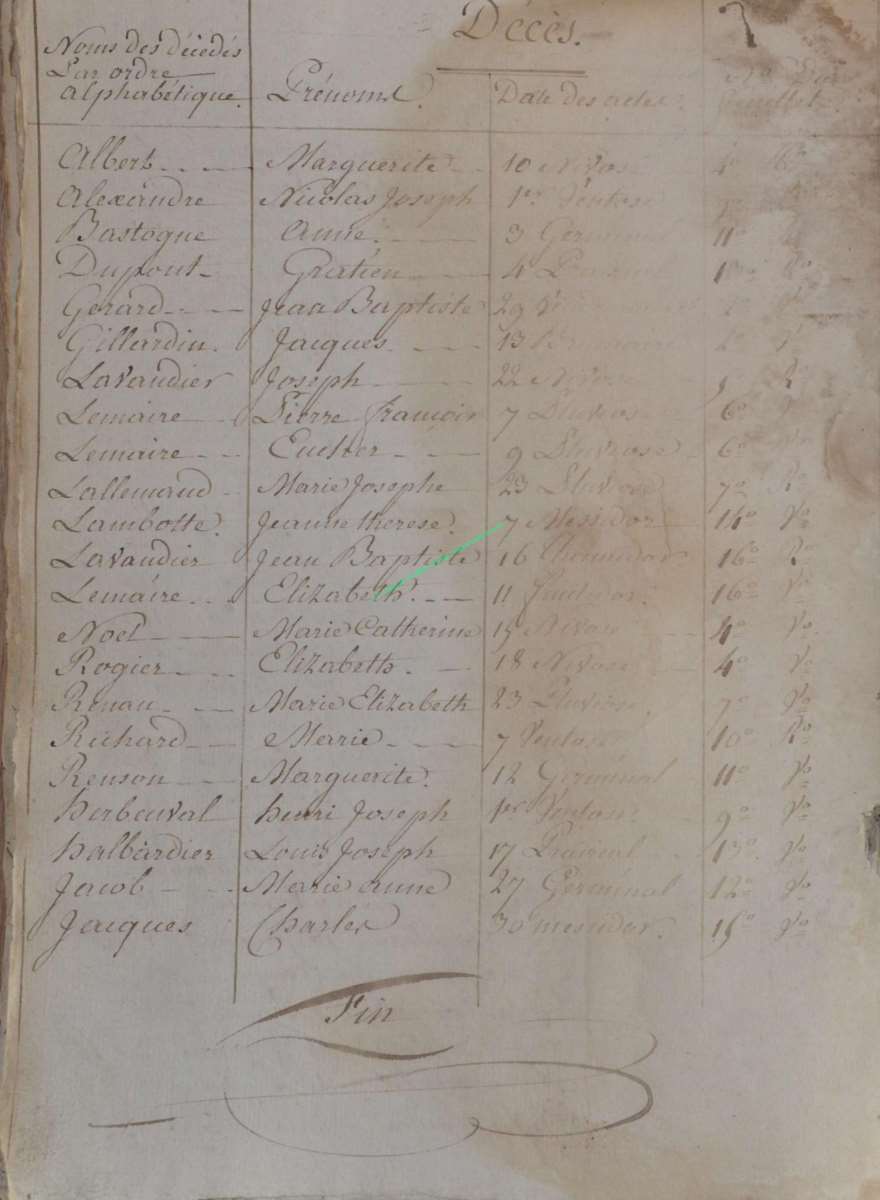 Décès.
Noms des décédés
Par ordre
alphabétique. Prénoms. Date des actes.
Albert Marguerite 10 Nivose 4o
Alexandre Nicolas Joseph 1er Ventose
Bastogne Anne. 3 Germinal 11o
Dupont Gratien 4 Prairial
Gérard Jean Baptiste 29
Gillardin. Jacques 13 Brumaire
Lavaudier Joseph 22 Nivose
Lemaire Pierre françois 7 Pluviose 6o
Lemaire 9 Pluviose 6o Vo
Lallemand Marie Josephe 23 Pluviose 7o Ro
Lambotte. Jeanne therese. 7 Messidor 14o Vo
Lavaudier Jean Baptiste 16 Thermidor 16o Ro
Lemaire Elizabeth. 11 fructidor. 16o Vo
Noel Marie Catherine 15 Nivose 4o Vo
Rogier Elizabeth. 18 Nivose 4o Vo
Renau Marie Elizabeth 23 Pluviose. 7o Vo
Richard Marie 7 Ventose 10o Ro
Renson Marguerite. 12 Germinal 11o Vo
herbeuval henri Joseph 1er Ventose 9o Vo
halbardier Louis Joseph 17 Prairial 13o Vo
Jacob Marie anne 27 Germinal 12o Vo
Jacques Charles 30 messidor. 15o Vo
Fin